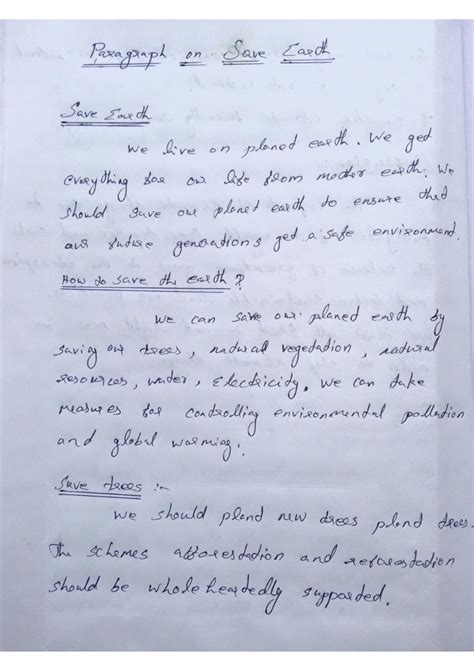 Paragraph on Save Earth
Save Earth
We live on planet earth. We get
everything for our life from mother earth. We
should save our planet earth to ensure that
our future generations get a safe environment.
How to save the earth?
We can save our planet earth by
saving our trees, natural vegetation, natural
resources, water, Electricity. We can take
measures for controlling environmental pollution
and global warming.
Save trees :-
We should plant new trees plant trees.
The schemes afforestation and reforestation
should be wholeheartedly supported.